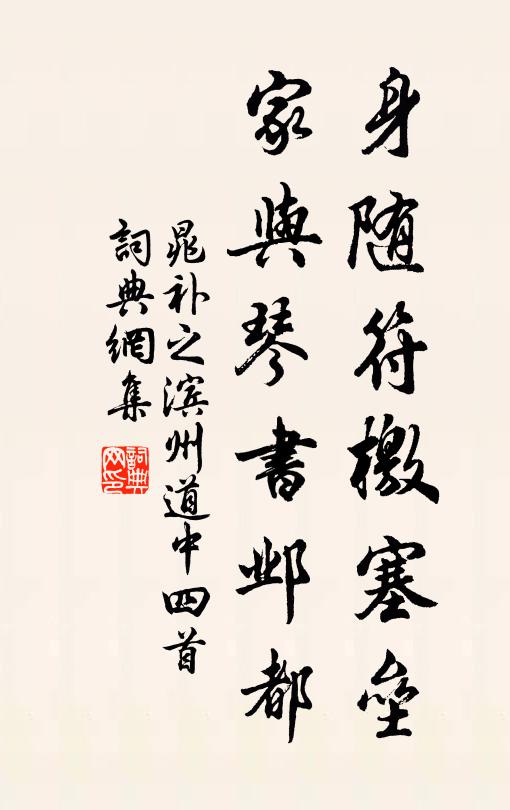 身随符檄塞垒
家與琴書邺都
晁补之滨州道中四首
詞典網集
詞典网印